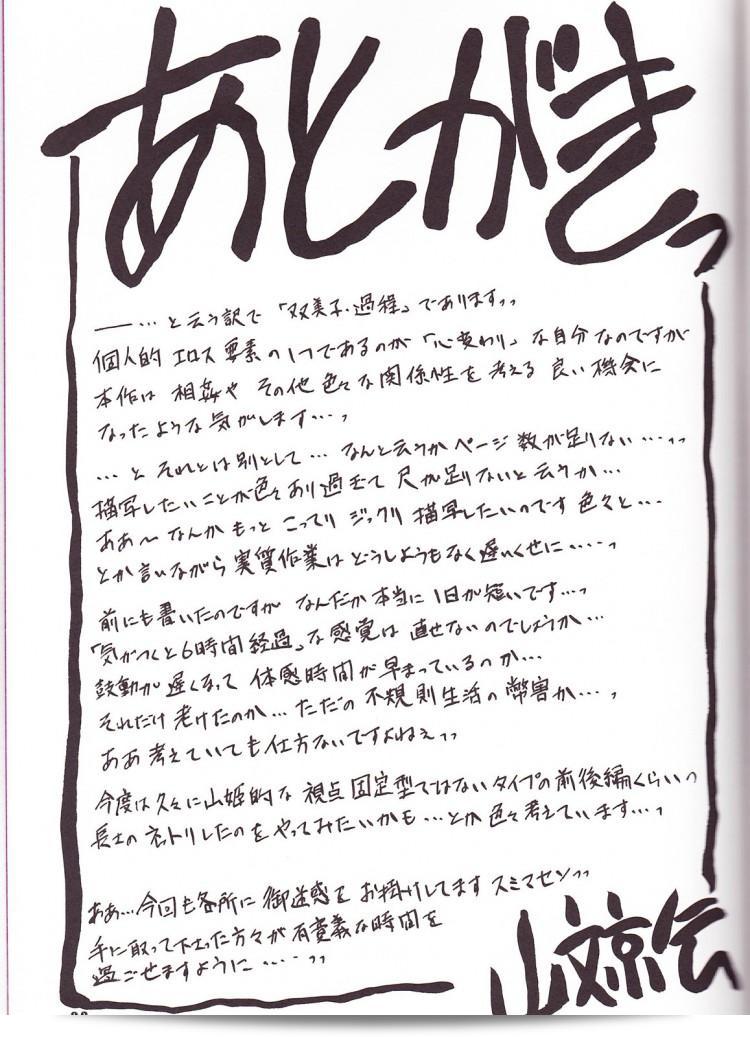 あとがきっ
――…と云う訳で「双美子・過程」でありますッッ
個人的エロス要素の1つであるのが「心変わり」な自分なのですが
本作は相姦やその他色々な関係性を考える良い機会に
なったような気がします…っ
…とそれとは別として…なんと云うかページ数が足りない…ッッ
描写したいことが色々あり過ぎて尺が足りないと云うか…
ああ～なんかもっとこってりジックリ描写したいのです色々と…
とか言いながら実質作業はどうしようもなく遅いくせに……っ
前にも書いたのですがなんだか本当に1日が短いです…っ
「気がつくと6時間経過」な感覚は直せないのでしょうか…
鼓動が遅くなって体感時間が早まっているのか…
それだけ老けたのか…ただの不規則生活の弊害か…っ
ああ考えていても仕方ないですよねぇッッ
今度は久々に山姫的な視点固定型ではないタイプの前後編くらいっ
長さのネットリしたのをやってみたいかも…とか色々考えています…っ
ああ…今回も各所に御迷惑をお掛けしてますスミマセンッッ
手に取って下さった方々が有意義な時間を
過ごせますように……ッッ
山文京伝